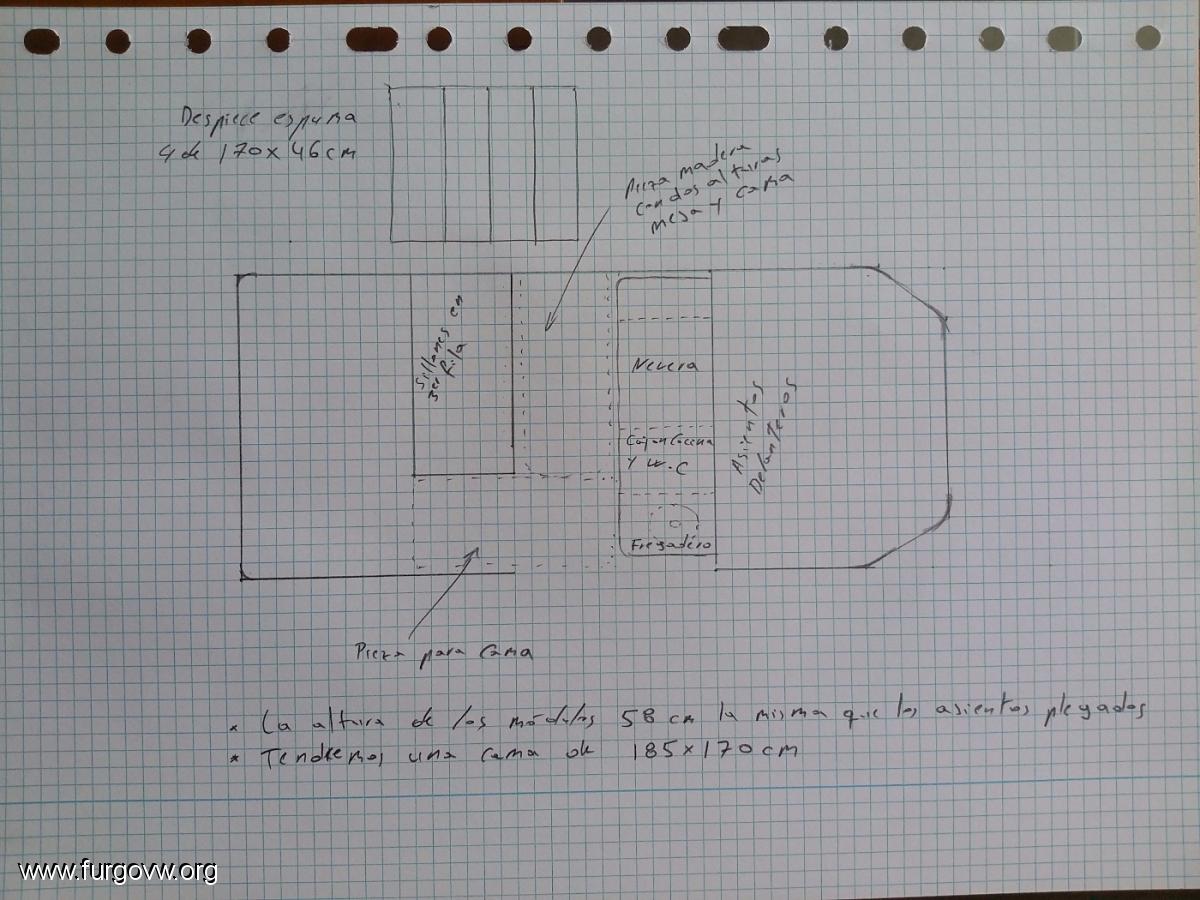 Despiece espuma
4 de 170x46cm
Pieza madera
con dos alturas
mesa y cama
Sillones en
3er fila
Nevera
Cajon Cocina
y W.C
Fregadero
Asientos
Delanteros
Pieza para Cama
* La altura de los módulos 58 cm la misma que los asientos plegados
* Tendremos una cama de 185x170cm
www.furgovw.org